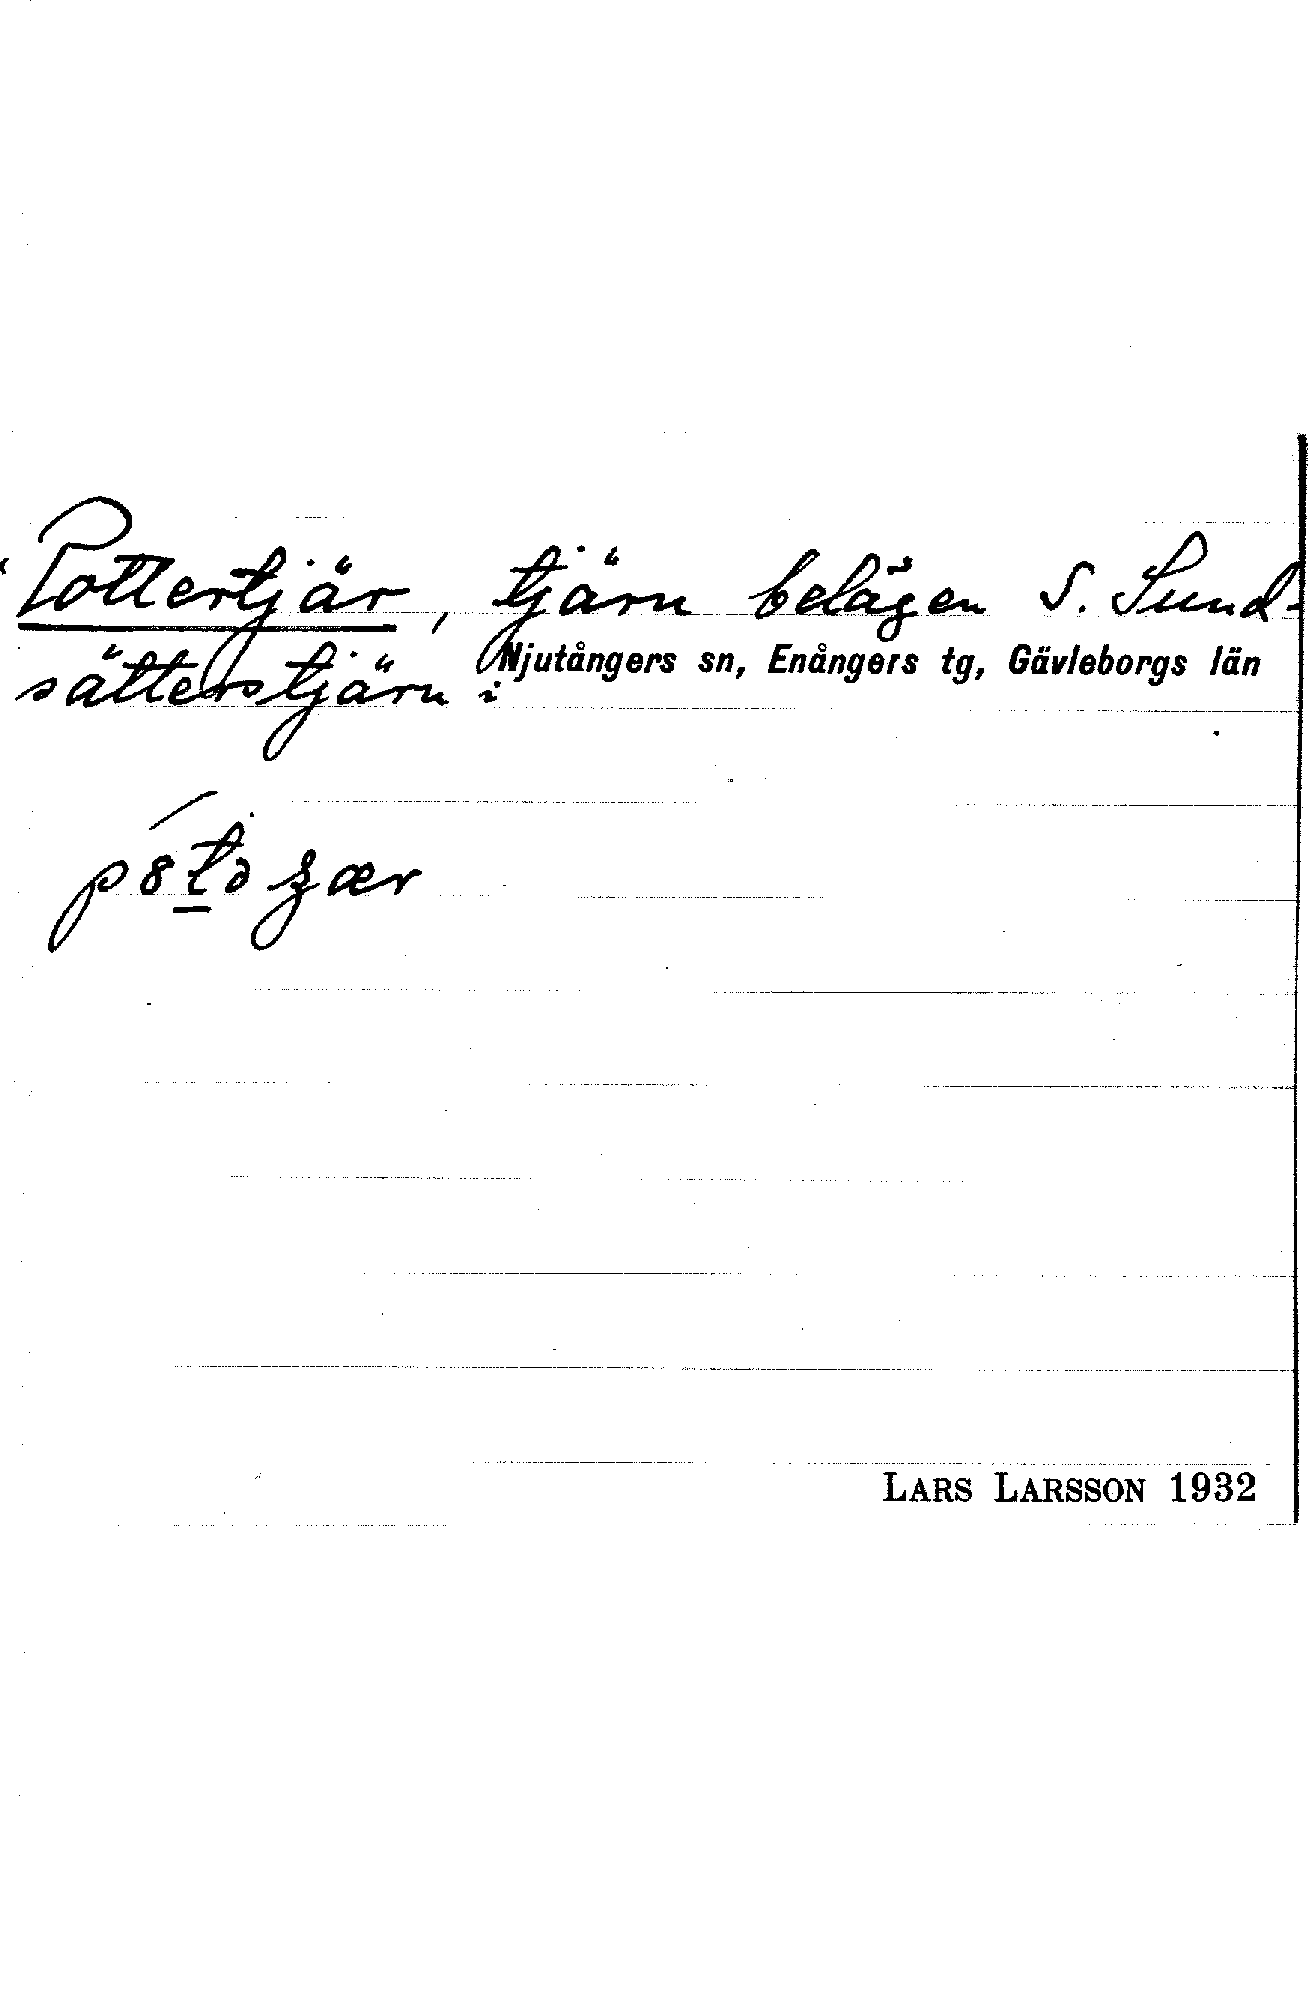 "Pottertjär, tjärn belägen S. Sund-
sätterstjärn i Njutångers sn, Enångers tg, Gävleborgs län
LARS LARSSON 1932